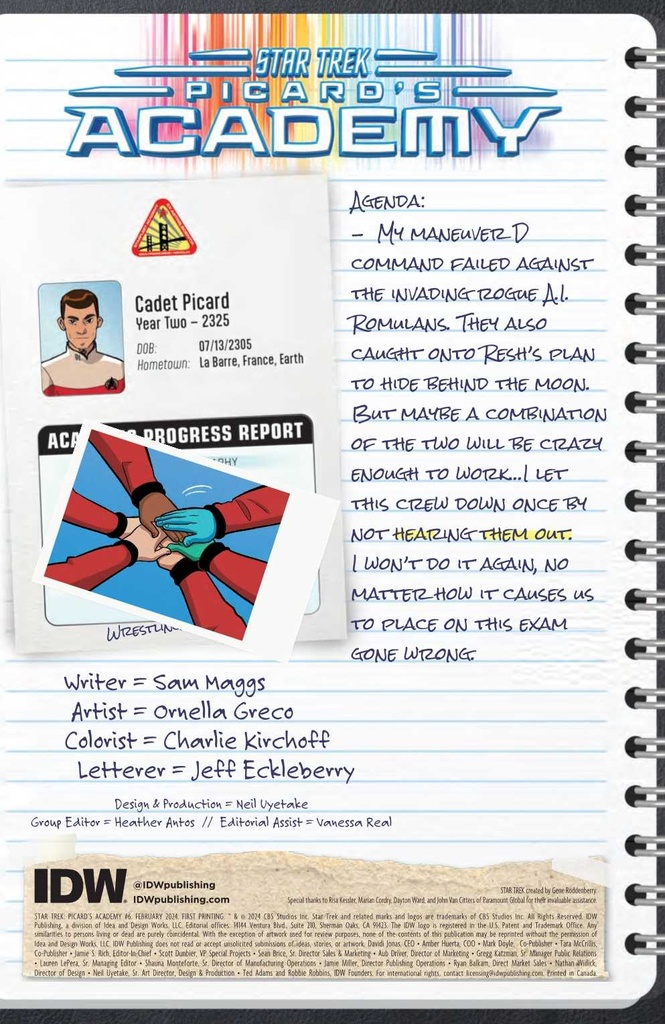 STAR TREK
PICARD'S
ACADEMY
Cadet Picard
Year Two – 2325
DOB: 07/13/2305
Hometown: La Barre, France, Earth
PROGRESS REPORT
WRESTLIN
AGENDA:
– MY MANEUVER D
COMMAND FAILED AGAINST
THE INVADING ROGUE A.I.
ROMULANS. THEY ALSO
CAUGHT ONTO RESH'S PLAN
TO HIDE BEHIND THE MOON.
BUT MAYBE A COMBINATION
OF THE TWO WILL BE CRAZY
ENOUGH TO WORK...I LET
THIS CREW DOWN ONCE BY
NOT HEARING THEM OUT.
I WON'T DO IT AGAIN, NO
MATTER HOW IT CAUSES US
TO PLACE ON THIS EXAM
GONE WRONG.
Writer = Sam Maggs
Artist = Ornella Greco
Colorist = Charlie Kirchoff
Letterer = Jeff Eckleberry
Design & Production = Neil Uyetake
Group Editor = Heather Antos // Editorial Assist = Vanessa Real
IDW
@IDWpublishing
IDWpublishing.com
STAR TREK created by Gene Roddenberry.
Special thanks to Risa Kessler, Marian Cordry, Dayton Ward, and John Van Citters of Paramount Global for their invaluable assistance.
STAR TREK: PICARD'S ACADEMY #6. FEBRUARY 2024. FIRST PRINTING. ™ & © 2024 CBS Studios Inc. Star Trek and related marks and logos are trademarks of CBS Studios Inc. All Rights Reserved. IDW
Publishing, a division of Idea and Design Works, LLC. Editorial offices: 14144 Ventura Blvd., Suite 210, Sherman Oaks, CA 91423. The IDW logo is registered in the U.S. Patent and Trademark Office. Any
similarities to persons living or dead are purely coincidental. With the exception of artwork used for review purposes, none of the contents of this publication may be reprinted without the permission of
Idea and Design Works, LLC. IDW Publishing does not read or accept unsolicited submissions of ideas, stories, or artwork. David Jonas, CEO • Amber Huerta, COO • Mark Doyle, Co-Publisher • Tara McCrillis,
Co-Publisher • Jamie S. Rich, Editor-In-Chief • Scott Dunbier, VP Special Projects • Sean Brice, Sr. Director Sales & Marketing • Aub Driver, Director of Marketing • Gregg Katzman, Sr. Manager Public Relations
• Lauren LePera, Sr. Managing Editor • Shauna Monteforte, Sr. Director of Manufacturing Operations • Jamie Miller, Director Publishing Operations • Ryan Balkam, Direct Market Sales • Nathan Widick,
Director of Design • Neil Uyetake, Sr. Art Director, Design & Production • Ted Adams and Robbie Robbins, IDW Founders. For international rights, contact licensing@idwpublishing.com. Printed in Canada.